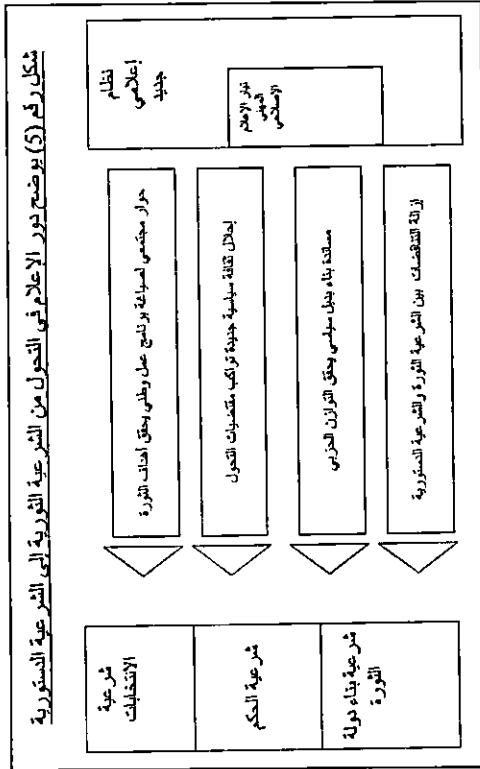 شكل رقم (5) يوضح دور الإعلام في التحول من الشرعية الثورية إلى الشرعية الدستورية
نظام
إعلامي
جديد
تيار الاعلام
المهني
الاصلاحي
حوار مجتمعي لصياغة برنامج عمل وطني يحقق أهداف الثورة
إحلال ثقافة سياسية جديدة تواكب مقتضيات التحول
مساندة بناء بديل سياسي يحقق التوازن الحزبي
إزالة التناقضات بين الشرعية الثورة والشرعية الدستورية
شرعية
الانتخابات
شرعية الحكم
شرعية بناء دولة
الثورة